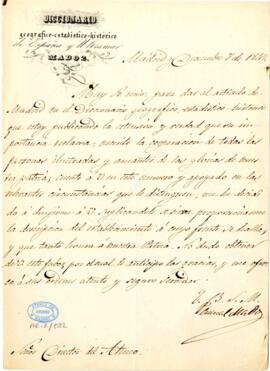 DICCIONARIO
geografico-estadistico-histórico
de España y Ultramar
MADOZ.
Madrid y Diciembre 7 de 184
Muy Sr. mio: para dar al articulo de
Madrid en el Diccionario geografico, estadistico historico
que estoy publicando la estension y verdad que su
importancia reclama, necesito la cooperacion de todas las
personas ilustradas y amantes de las glorias de nues
tra patria; cuento á V. en este numero y apoyado en las
relevantes circunstancias que le distinguen, me he decidi
do á dirigirme á V. suplicandole se sirva proporcionarme
la descripcion del establecimiento á cuyo frente se halla,
y que tanto honra á nuestra Patria. No dudo obtener
de V. este favor por el cual le anticipo las gracias, y me ofrez
co á sus ordenes atento y seguro servidor
Q. B. S. M.
Pascual Madoz
Señor Director del Ateneo.